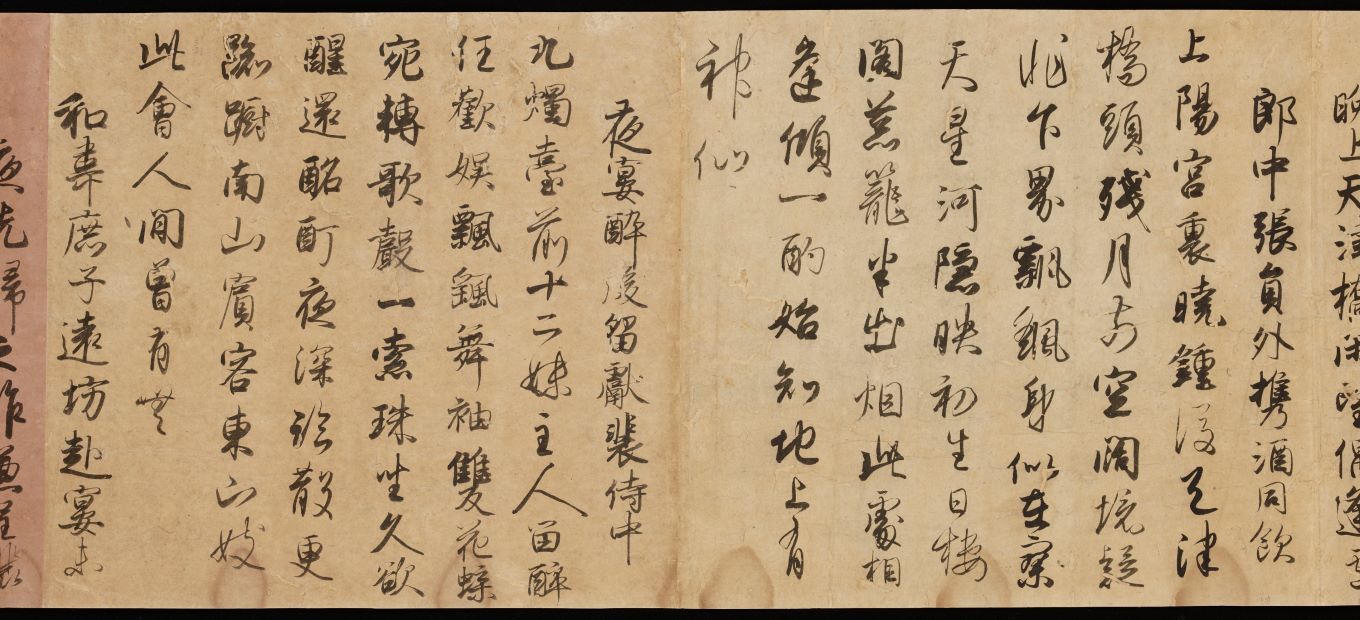 晚上天津橋閑望偶逢盧
郎中張員外携酒同飲
上陽宮裏曉鍾後天津
橋頭殘月前空闊境疑
非下界飄颻身似在寥
天星河隱映初生日樓
閣葱蘢半出烟此處相
逢傾一酌始知地上有
神仙
夜宴醉後留獻裴侍中
九燭臺前十二姝主人留醉
任歡娛飄颻舞袖雙花蝶
宛轉歌聲一索珠坐久欲
醒還酩酊夜深臨散更
踟躕南山賓客東山妓
此會人間曾有無
和韋庶子遠坊赴宴未
夜先歸之作兼呈裴